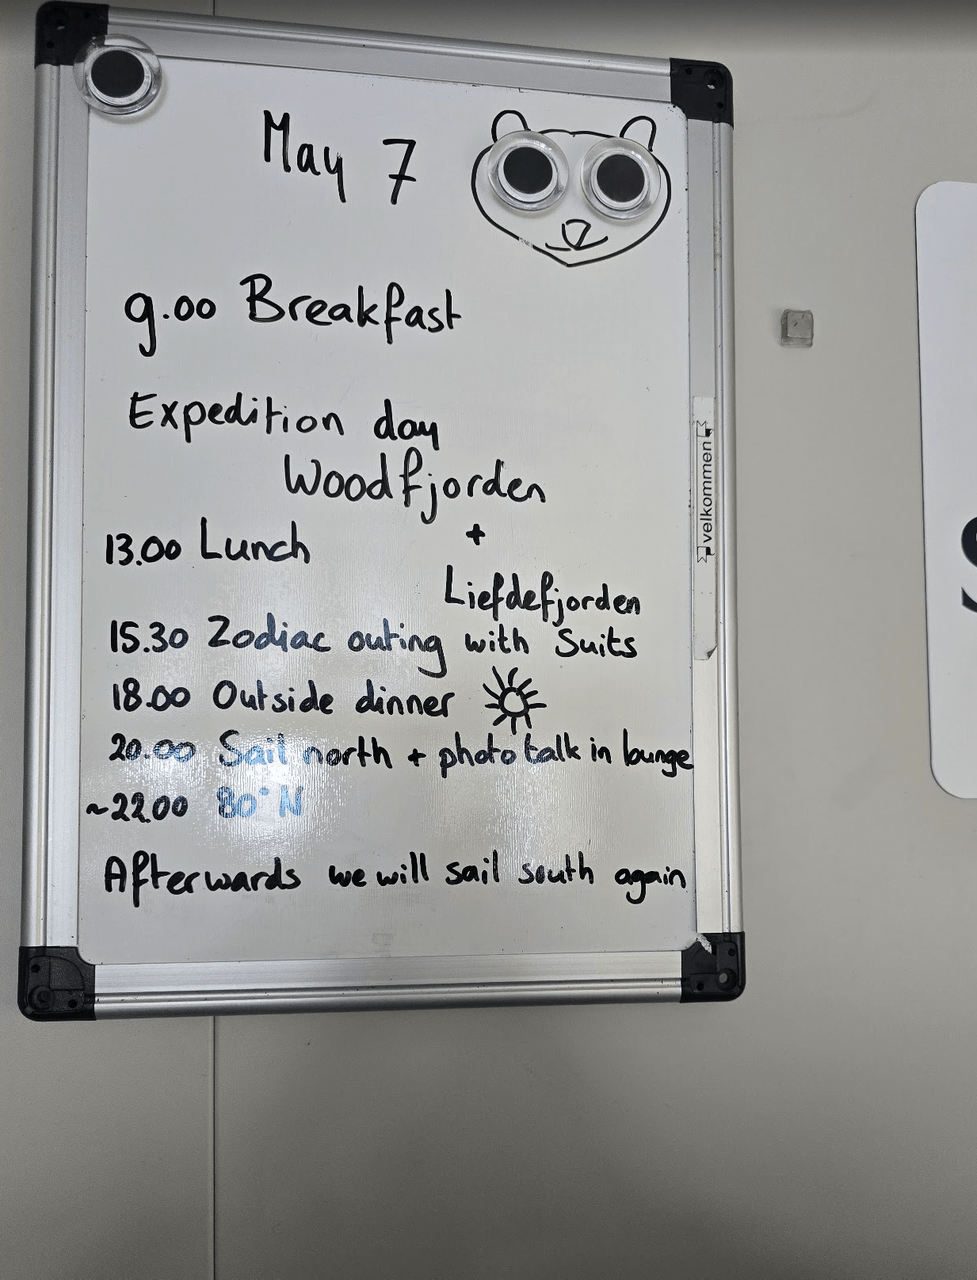 May 7
9.00 Breakfast
Expedition day
Woodfjorden
+
13.00 Lunch
Liefdefjorden
15.30 Zodiac outing with Suits
18.00 Outside dinner
20.00 Sail north + photo talk in lounge
~22.00 80° N
Afterwards we will sail south again
velkommen